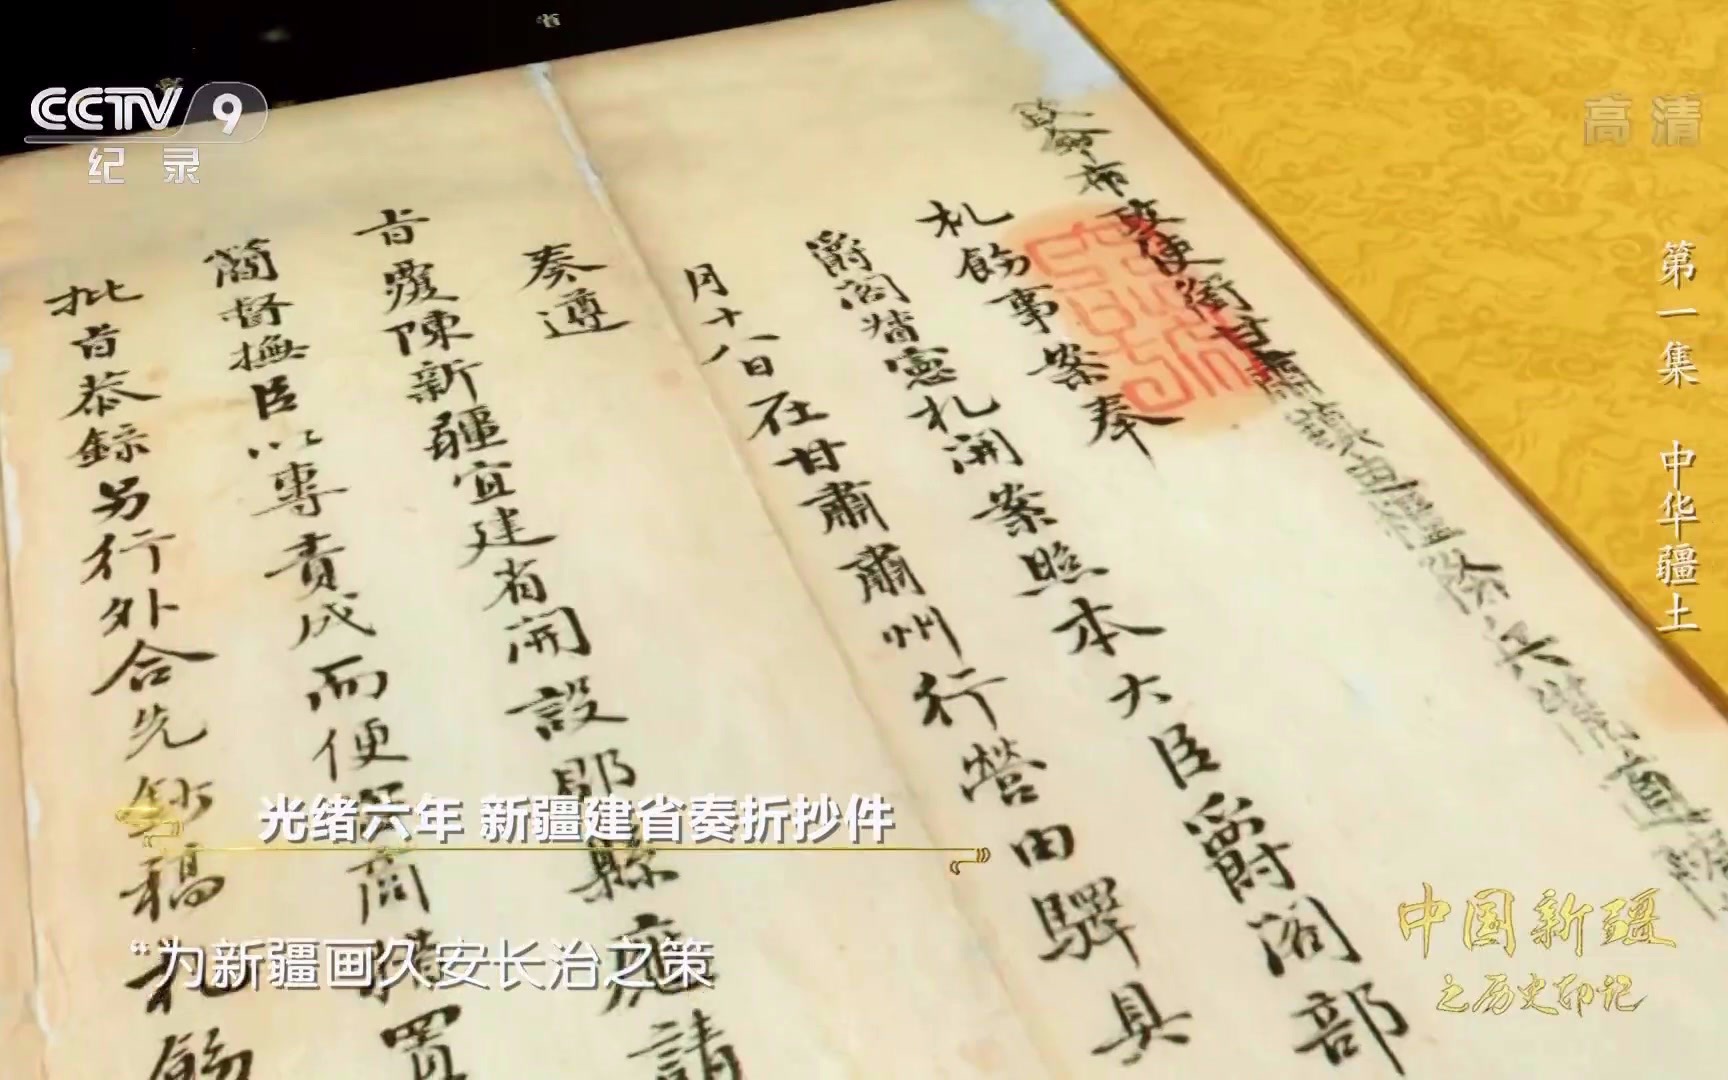 CCTV 9
纪 录
高清
第一集 中华疆土
布政使銜甘肅
札飭事案奉
爵閣督憲札開案照本大臣爵閣部
月十八日在甘肅肅州行營由驛具
奏遵
旨覆陳新疆宜建省開設郡縣應請
簡督撫臣以專責成而便 商 置
批旨恭錄另行外合先鈔稿札飭
光绪六年 新疆建省奏折抄件
“为新疆画久安长治之策
中国新疆
之历史印记